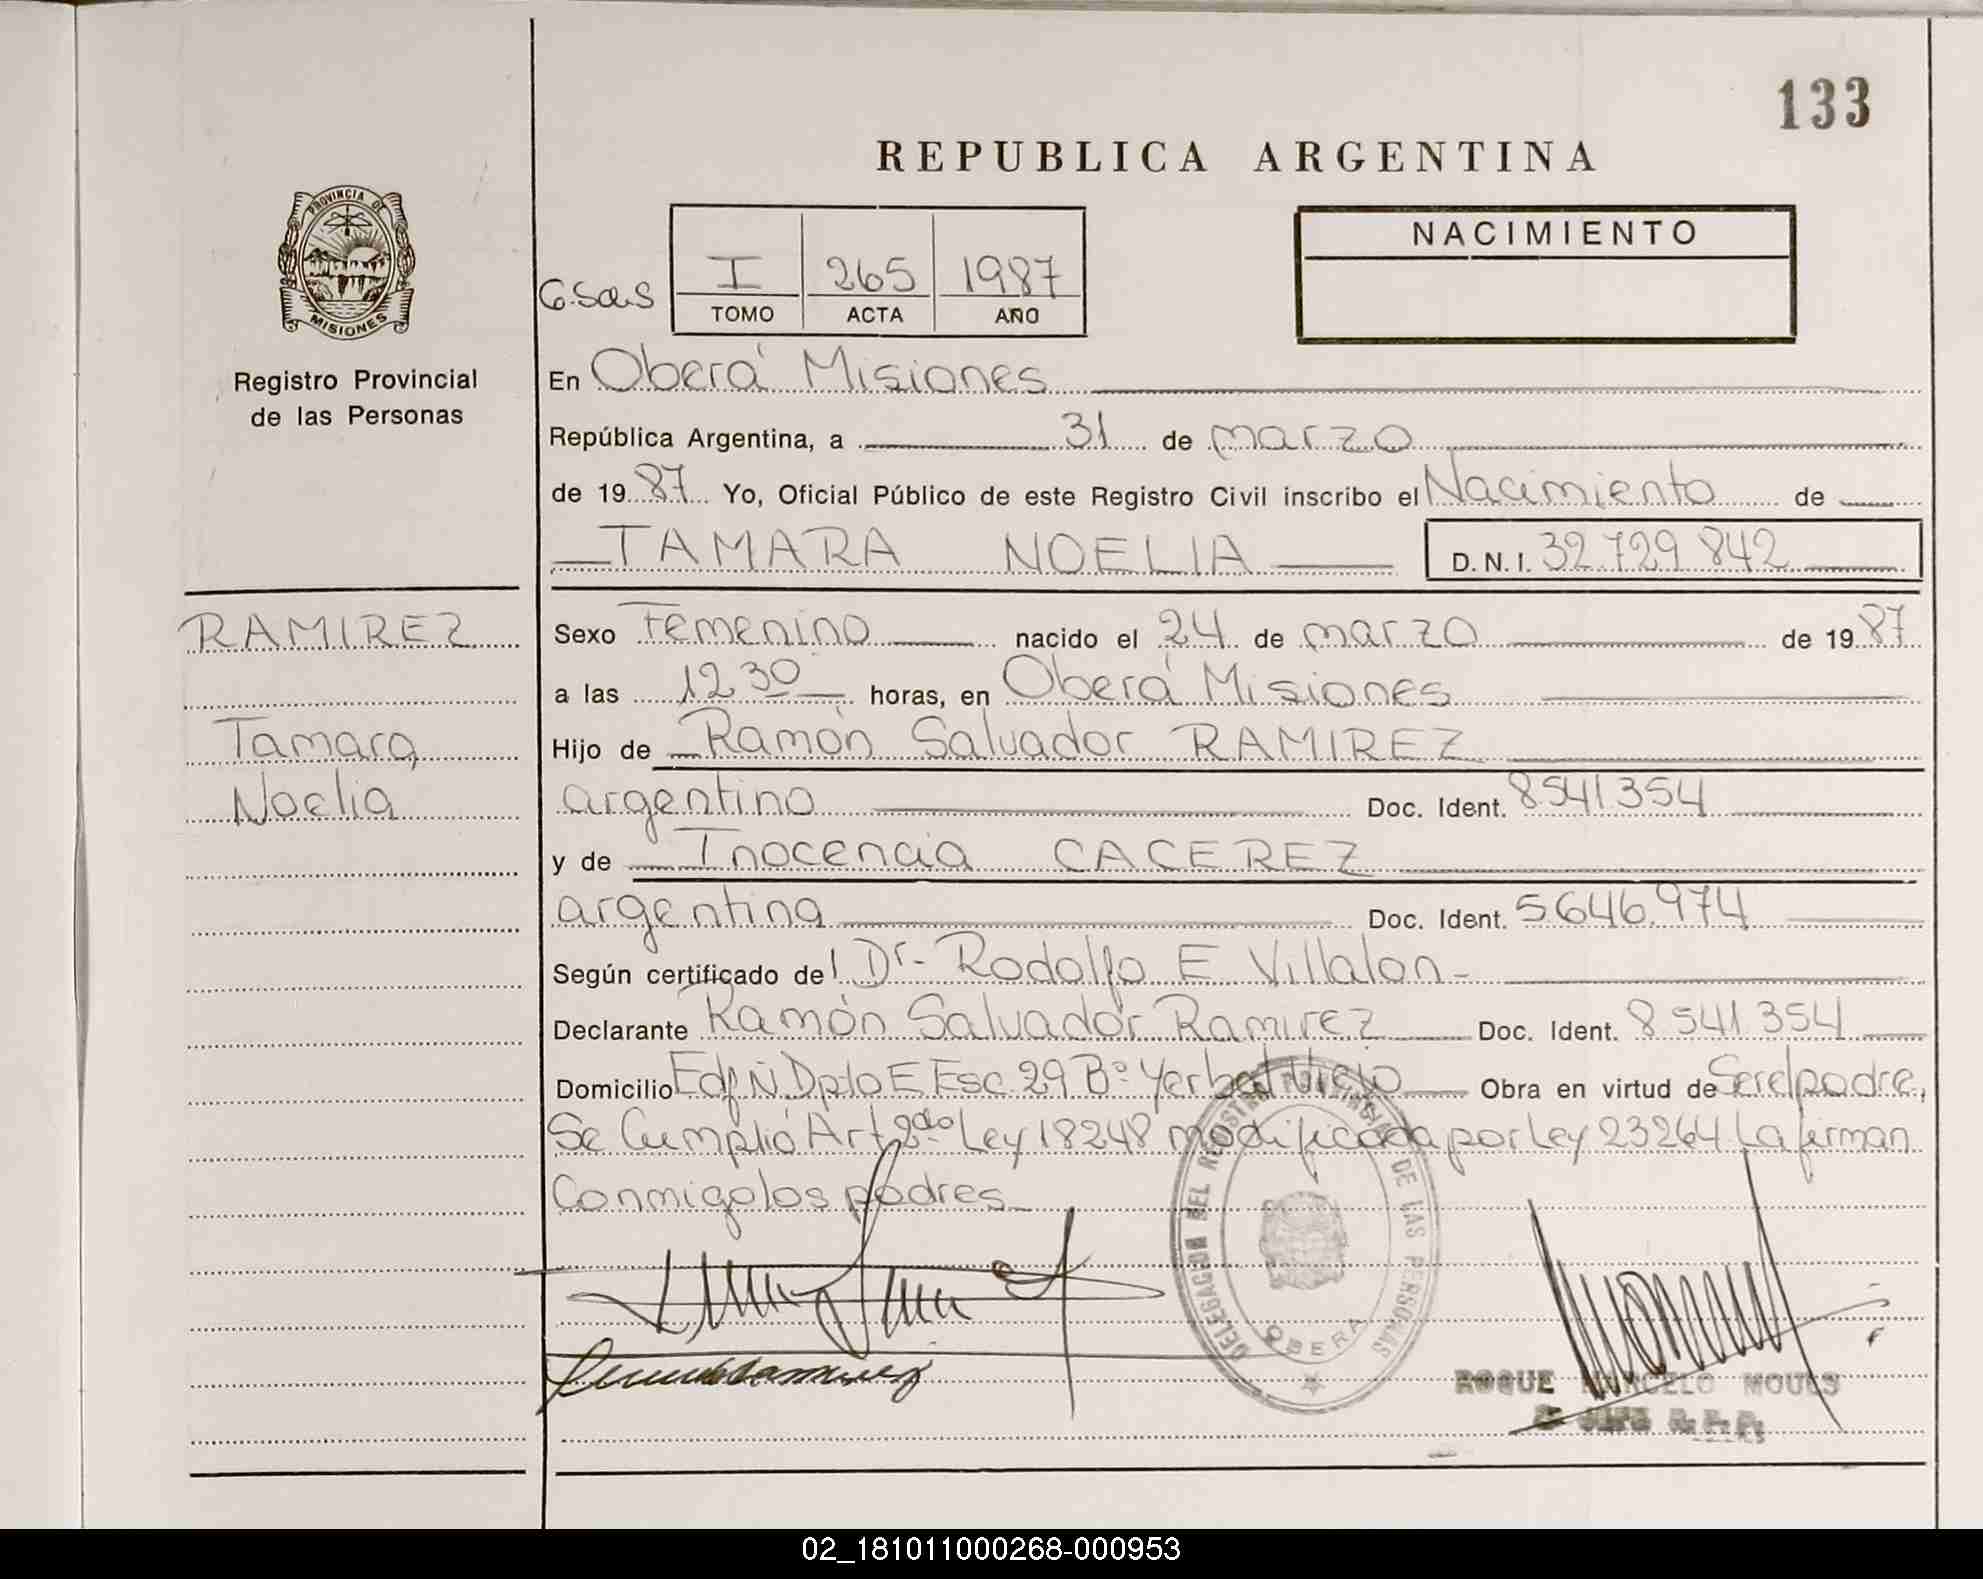 133
REPUBLICA ARGENTINA
PROVINCIA DE
MISIONES
Registro Provincial
de las Personas
NACIMIENTO
I 265 1987
TOMO ACTA AÑO
En Oberá Misiones
República Argentina, a 31 de marzo
de 1987 Yo, Oficial Público de este Registro Civil inscribo el Nacimiento de
TAMARA NOELIA D.N.I. 32.729.842
RAMIREZ
Tamara
Noelia
Sexo Femenino nacido el 24 de marzo de 1987
a las 12 30 horas, en Oberá Misiones
Hijo de Ramón Salvador RAMIREZ
argentino Doc. Ident. 8541354
y de Inocencia CACEREZ
argentina Doc. Ident. 5.646.974
Según certificado del Dr- Rodolfo E Villalon-
Declarante Ramón Salvador Ramirez Doc. Ident. 8541354
Domicilio Edf N Dpto E Esc. 29 Bº Yerbal Viejo Obra en virtud de Ser el padre,
Se Cumplió Art 2do Ley 18248 modificada por Ley 23264 La firman
Conmigo los padres-
DELEGACION DEL REGISTRO PROVINCIAL DE LAS PERSONAS
OBERA
ROQUE MARCELO
02_181011000268-000953